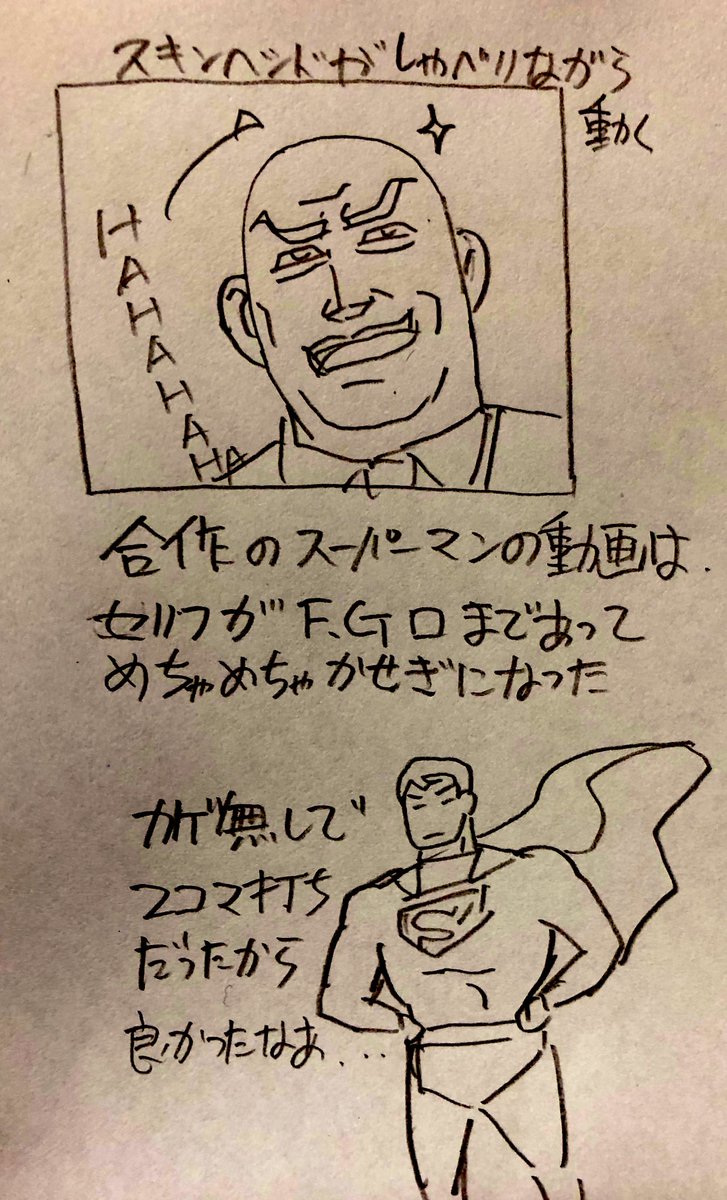 スキンヘッドがしゃべりながら
動く
HAHAHAHAHA
合作のスーパーマンの動画は、
セリフがF.G口まであって
めちゃめちゃかせぎになった
カゲ無しで
2コマ打ち
だったから
良かったなあ...
S